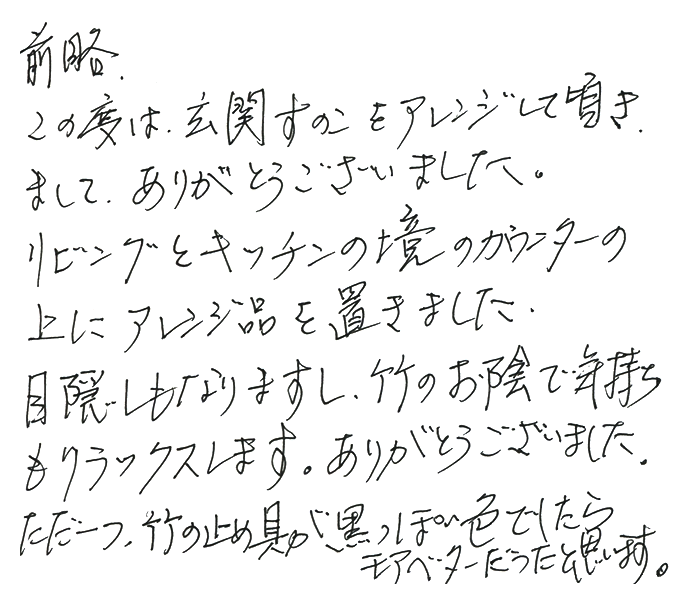 前略.
この度は、玄関すのこをアレンジして頂き、
まして、ありがとうございました。
リビングとキッチンの境のカウンターの
上にアレンジ品を置きました.
目隠しもなりますし、竹のお陰で気持ち
もリラックスします。ありがとうございました.
ただ一つ、竹の止め具が黒っぽい色でしたら
モアベターだったと思います。